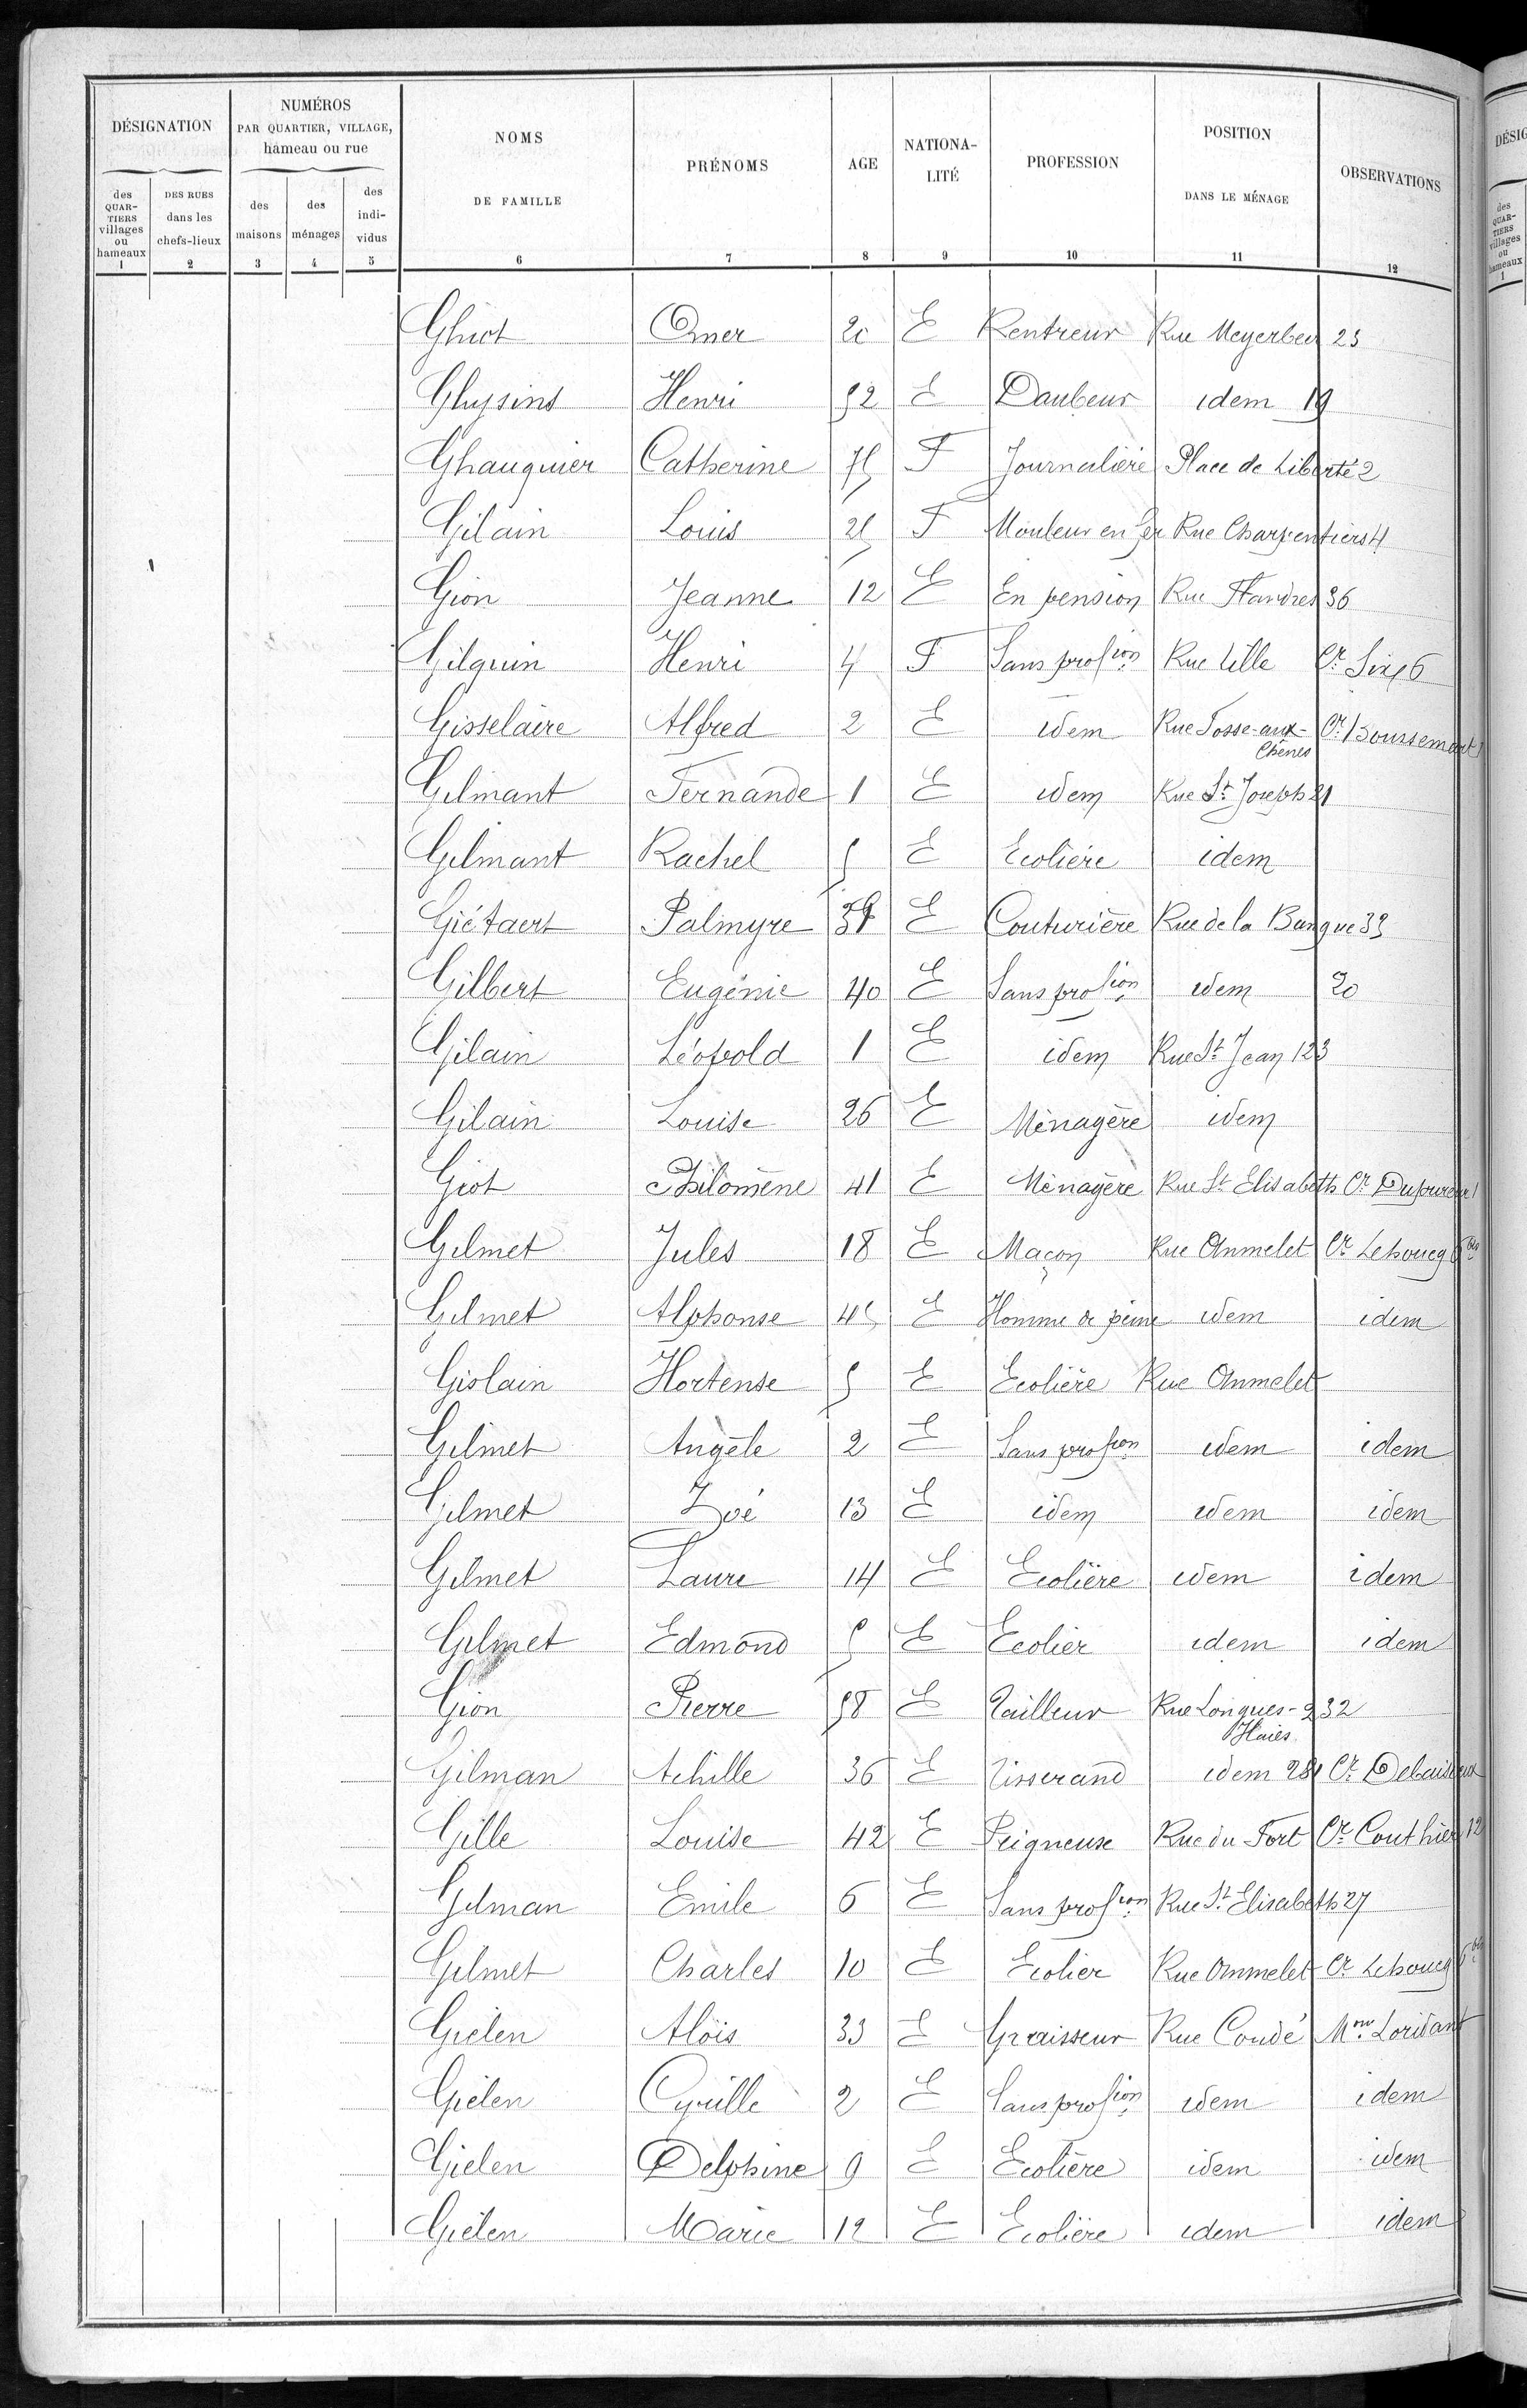 DÉSIGNATION
NUMÉROS
PAR QUARTIER, VILLAGE,
hameau ou rue
NOMS
DE FAMILLE
PRÉNOMS
AGE
NATIONA-
LITÉ
PROFESSION
POSITION
DANS LE MÉNAGE
OBSERVATIONS
des
QUAR-
TIERS
villages
ou
hameaux
DES RUES
dans les
chefs-lieux
des
maisons
des
ménages
des
indi-
vidus
1 2 3 4 5 6 7 8 9 10 11 12
Ghiot Omer 20 E Rentreur Rue Meyerbeer 25
Ghysins Henri 52 E Daubeur idem 19
Ghauquier Catherine 75 F Journalière Place de Liberté 2
Gilain Louis 25 F Mouleur en fer Rue Charpentiers 4
Gion Jeanne 12 E En pension Rue Flandres 36
Gilquin Henri 4 F Sans profion Rue Lille Cr Six 6
Gisselaire Alfred 2 E idem Rue Fosse-aux-Chênes Cr Boussemart
Gilmant Fernande 1 E idem Rue St Joseph 21
Gilmant Rachel 5 E Ecolière idem
Giétaert Palmyre E Couturière Rue de la Banque 33
Gilbert Eugénie 40 E Sans profion idem 20
Gilain Léopold 1 E idem Rue St Jean 123
Gilain Louise 26 E Ménagère idem
Giot Philomène 41 E Ménagère Rue St Elisabeth Cr
Gilmet Jules 18 E Maçon Rue Ommelet Cr Lehoucq 6bis
Gilmet Alphonse 45 E Homme de peine idem idem
Gislain Hortense 5 E Ecolière Rue Ommelet
Gilmet Angèle 2 E Sans profion idem idem
Gilmet Zoé 13 E idem idem idem
Gilmet Laure 14 E Ecolière idem idem
Gilmet Edmond 5 E Ecolier idem idem
Gion Pierre 58 E Tailleur Rue Longues-Haies 232
Gilman Achille 36 E Tisserand idem 281 Cr Delaisseux
Gille Louise 42 E Peigneuse Rue du Fort Cr Couthier 12
Gilman Emile 6 E Sans profion Rue St Elisabeth 27
Gilmet Charles 10 E Ecolier Rue Ommelet Cr Lehoucq 6bis
Gielen Aloïs 33 E Graisseur Rue Condé Mon Loridant
Gielen Cyrille 2 E Sans profion idem idem
Gielen Delphine 9 E Ecolière idem idem
Gielen Marie 12 E Ecolière idem idem
DÉSIG
des
QUAR-
TIERS
villages
ou
hameaux
1